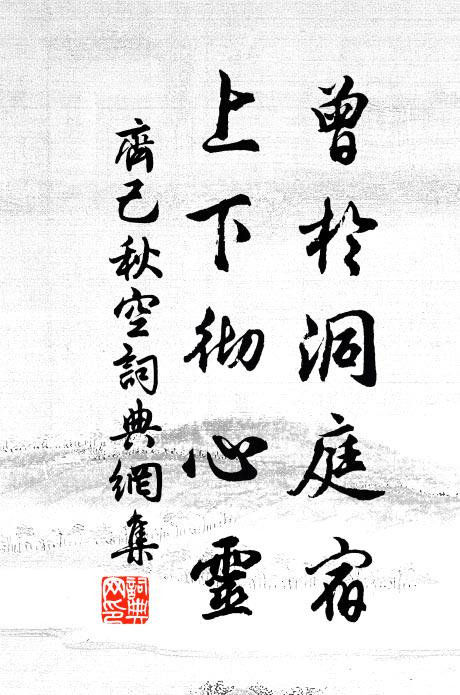 曾於洞庭宿
上下彻心靈
齊己秋空詞典網集
詞典